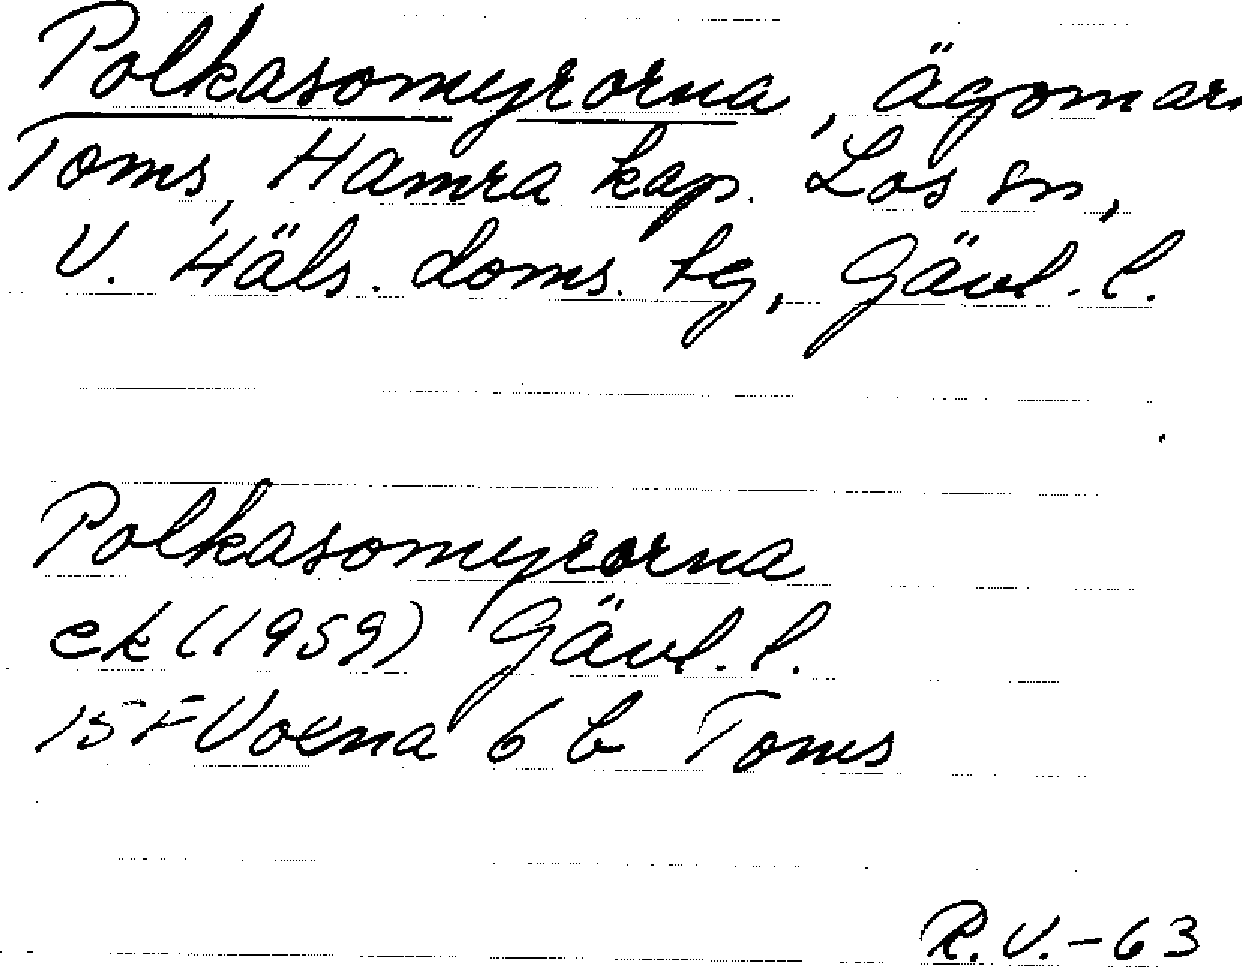 Polkasomyrorna, ägomar
Toms, Hamra kap. Los sn,
V. Häls. doms. tg, Gävl. l.
Polkasomyrorna
ek (1959) Gävl. l.
15 F Voxna 6 b Toms
R.V.-63